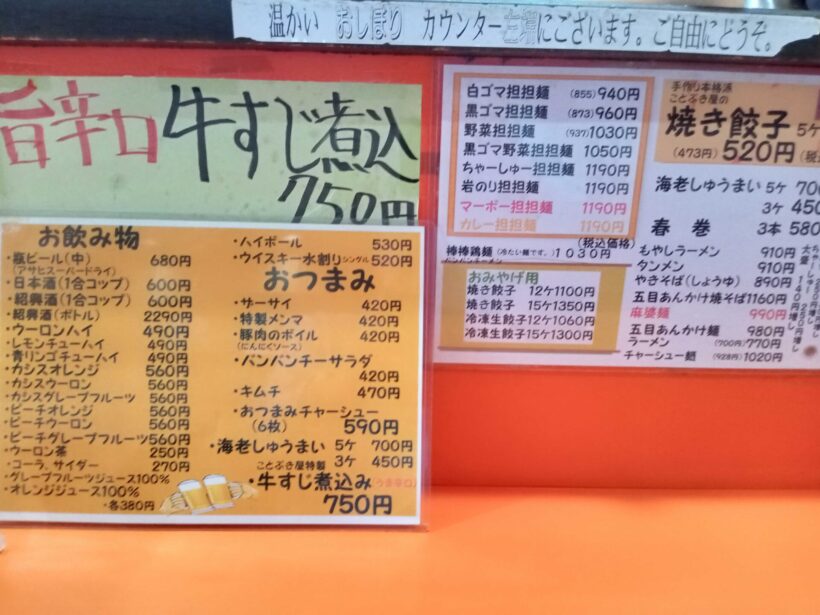 温かい おしぼり カウンター
にございます。ご自由にどうぞ。
旨辛口 牛すじ煮込
750円
お飲み物
・瓶ビール(中) 680円
(アサヒスーパードライ)
・日本酒(1合コップ) 600円
・紹興酒(1合コップ) 600円
・紹興酒(ボトル) 2290円
・ウーロンハイ 490円
・レモンチューハイ 490円
・青リンゴチューハイ 490円
・カシスオレンジ 560円
・カシスウーロン 560円
・カシスグレープフルーツ 560円
・ピーチオレンジ 560円
・ピーチウーロン 560円
・ピーチグレープフルーツ 560円
・ウーロン茶 250円
・コーラ、サイダー 270円
・グレープフルーツジュース100%
・オレンジジュース100%
・各380円
・ハイボール 530円
・ウイスキー水割り シングル 520円
おつまみ
・ザーサイ 420円
・特製メンマ 420円
・豚肉のボイル 420円
(にんにくソース)
・バンバンチーサラダ
420円
・キムチ 470円
・おつまみチャーシュー
(6枚) 590円
・海老しゅうまい 5ケ 700円
ことぶき屋特製 3ケ 450円
・牛すじ煮込み(うま辛口)
750円
白ゴマ担担麺 (855) 940円
黒ゴマ担担麺 (873) 960円
野菜担担麺 (937) 1030円
黒ゴマ野菜担担麺 1050円
ちゃーしゅー担担麺 1190円
岩のり担担麺 1190円
マーボー担担麺 1190円
カレー担担麺 1190円
(税込価格)
棒棒鶏麺 (冷たい麺です。) 1030円
おみやげ用
焼き餃子 12ケ1100円
焼き餃子 15ケ1350円
冷凍生餃子12ケ1060円
冷凍生餃子15ケ1300円
手作り本格派
ことぶき屋の
焼き餃子 5ケ
(473円) 520円 (税
海老しゅうまい 5ケ 700
3ケ 450
春巻 3本 580
もやしラーメン 910円
タンメン 910円
やきそば(しょうゆ) 890円
五目あんかけ焼そば 1160円
麻婆麺 990円
五目あんかけ麺 980円
ラーメン (700円) 770円
チャーシュー麺 (928円) 1020円